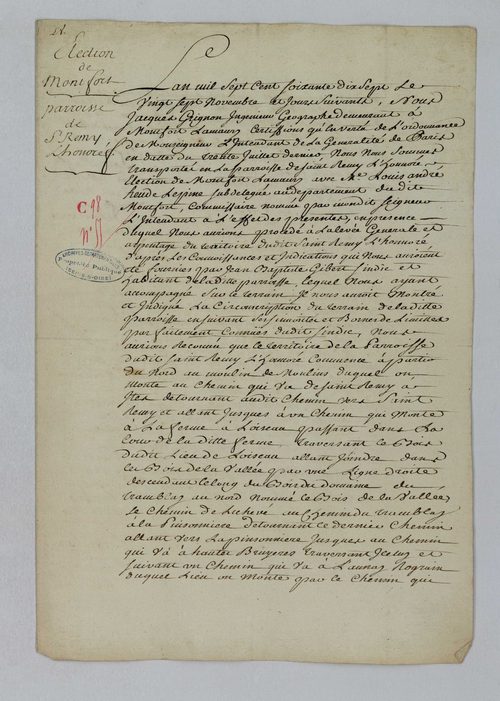 Election
de
Montfort
parroisse
de
St Remy
L'honoré
C 98
n° 51
Propriété Publique
Le
L'an mil sept cent soixante dix sept le
vingt sept Novembre et jours suivants, Nous
Jacques Ingenieur Geographe demeurant à
Montfort Lamaury Certifions qu'en vertu de L'ordonnance
de Monseigneur L'Intendant de la Generalité de Paris
en datte du trente Juillet dernier, Nous Nous sommes
transporter en La parroisse de saint Remy L'honoré
Election de Montfort Lamaury avec Me Louis andré
subdelegué au departement dudit
Montfort, Commissaire nommé par mondit seigneur
L'Intendant à L'effet des presentes, en presence
duquel Nous aurions procedé à La levée Generale et
arpentage du territoire dudit Saint Remy L'honoré
d'après Les Connoissances et Indications qui Nous auroient
été fournies par Jean Baptiste Gibert sindic et
habitant de laditte parroisse, lequel Nous ayant
accompagné sur le terrain Il nous auroit Montré
et Indiqué La Circonscription du terrain de laditte
parroisse en suivant ses et Bornes de Limittes
parfaitement Connües dudit sindic, Nous
aurions Reconnu que le territoire de la Parroisse
dudit Saint Remy L'honoré Commence à partir
du Nord au moulin de Moulins duquel on
monte au Chemin qui va de saint Remy a
detournant audit Chemin vers Saint
Remy et allant Jusques à un Chemin qui Monte
à La ferme à Loiseau passant dans La
Cour de la ditte ferme traversant Le Bois
dudit Lieu de Loiseau allant Joindre dans
Le Bois de la Vallée par une Ligne droite
descendant le long du Bois du domaine du
tremblay au nord Nommé Le Bois de la Vallée,
Le Chemin de au Chemin du tremblay
a la pinsonniere detournant ce dernier Chemin
allant vers La pinsonniere Jusques au Chemin
qui va à hautes Bruyeres traversant Icelui et
suivant un Chemin qui va à Launay
duquel Lieu on Monte par le Chemin qui